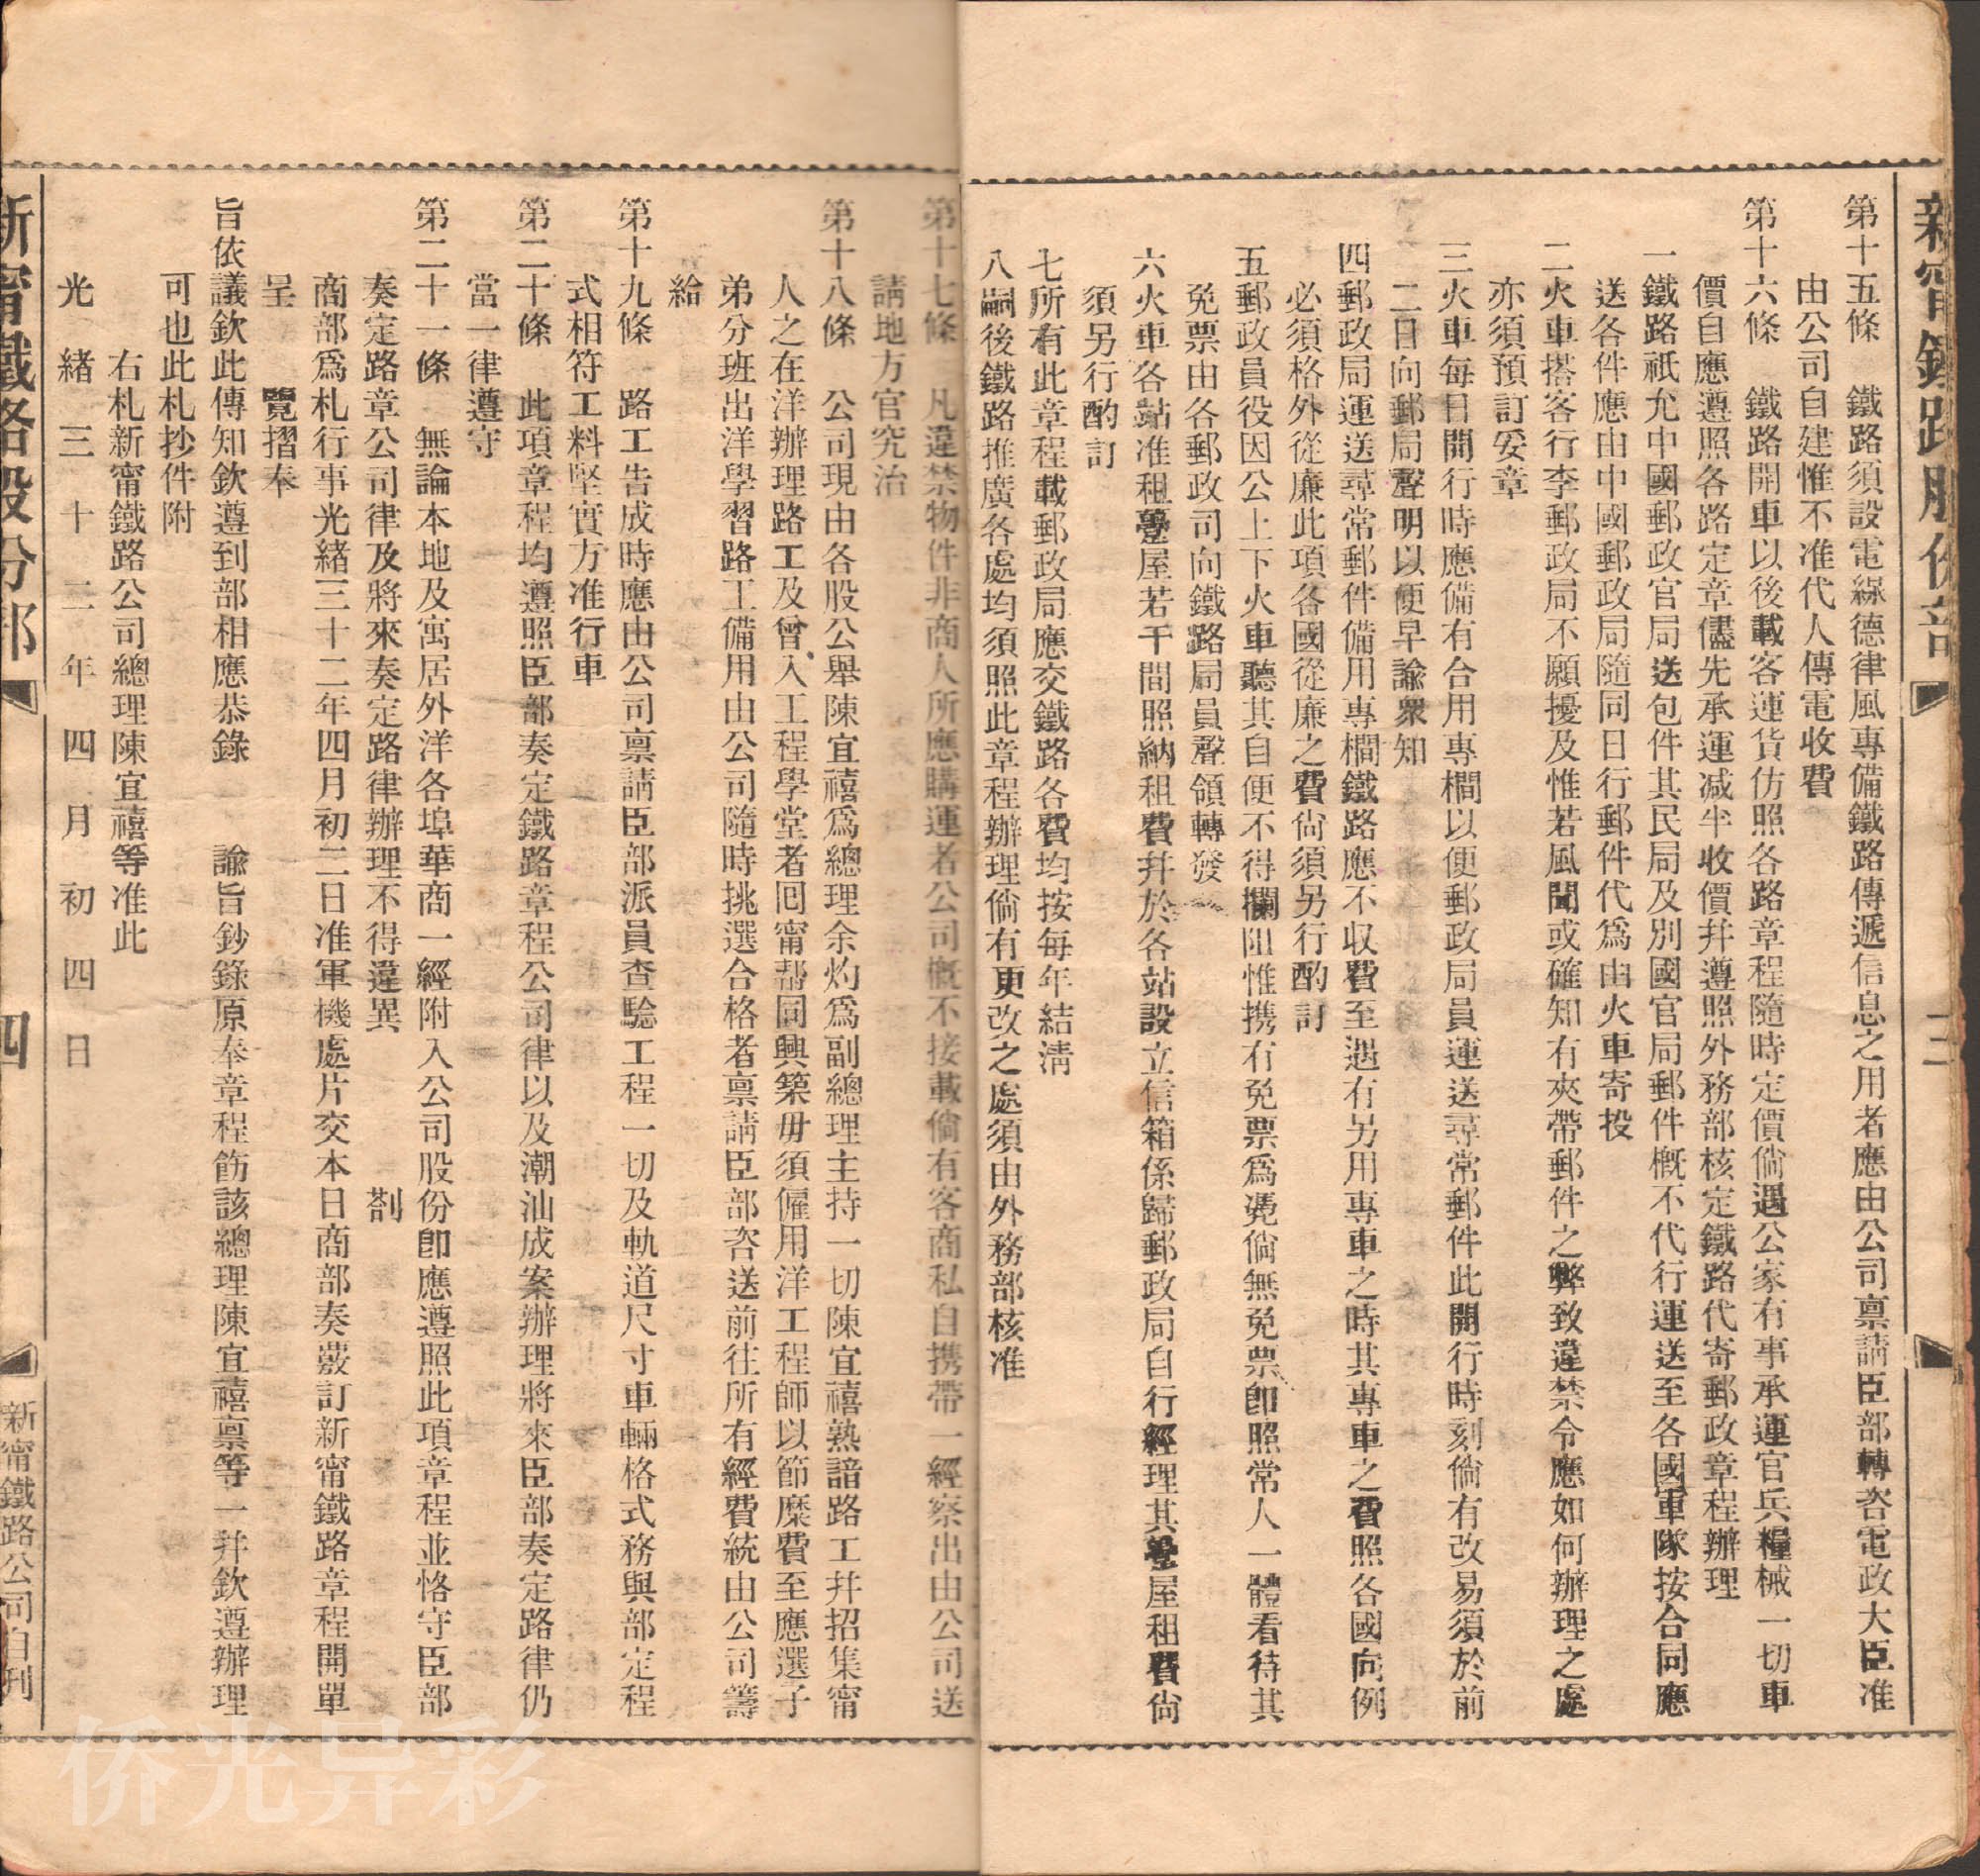 新甯鐵路股份部
三
第十五條　鐵路須設電線德律風專備鐵路傳遞信息之用者應由公司禀請臣部轉咨電政大臣准
由公司自建惟不准代人傳電收費
第十六條　鐵路開車以後載客運货仿照各路章程隨時定價倘遇公家有事承運官兵糧械一切車
價自應遵照各路定章儘先承運减半收價幷遵照外務部核定鐵路代寄郵政章程辦理
一鐵路祇允中國郵政官局送包件其民局及別國官局郵件槪不代行運送至各國軍隊按合同應
送各件應由中國郵政局隨同日行郵件代爲由火車寄投
二火車搭客行李郵政局不願擾及惟若風聞或確知有夾帶郵件之弊致違禁令應如何辦理之處
亦須預訂妥章
三火車每日開行時應備有合用專櫊以便郵政局員運送尋常郵件此開行時刻倘有改易須於前
二日向郵局聲明以便早諭衆知
四郵政局運送尋常郵件備用專櫊鐵路應不収費至遇有另用專車之時其專車之費照各國向例
必須格外從廉此項各國從廉之費尙須另行酌訂
五郵政員役因公上下火車聽其自便不得攔阻惟携有免票爲凴倘無免票卽照常人一體看待其
免票由各郵政司向鐵路局員聲領轉發
六火車各站准租疊屋若干間照納租費幷於各站設立信箱係歸郵政局自行經理其疊屋租費尙
須另行酌訂
七所有此章程載郵政局應交鐵路各費均按每年結淸
八嗣後鐵路推廣各處均須照此章程辦理倘有更改之處須由外務部核准
第十七條　凡違禁物件非商人所應購運者公司槪不接載倘有客商私自携帶一經察出由公司送
請地方官究治
第十八條　公司現由各股公舉陳宜禧爲總理余灼爲副總理主持一切陳宜禧熟諳路工幷招集甯
人之在洋辦理路工及曾入工程學堂者囘甯帮同興築毋須僱用洋工程師以節縻費至應選子
弟分班出洋學習路工備用由公司隨時挑選合格者禀請臣部咨送前往所有經費統由公司籌
給
第十九條　路工告成時應由公司禀請臣部派員查騐工程一切及軌道尺寸車輛格式務與部定程
式相符工料堅實方准行車
第二十條　此項章程均遵照臣部奏定鐵路章程公司律以及潮汕成案辦理將來臣部奏定路律仍
當一律遵守
第二十一條　無論本地及寓居外洋各埠華商一經附入公司股份卽應遵照此項章程並恪守臣部
奏定路章公司律及將來奏定路律辦理不得違異　　　　劄
商部爲札行事光緒三十二年四月初二日准軍機處片交本日商部奏蕟訂新甯鐵路章程開單
呈　　覽摺奉
旨依議欽此傳知欽遵到部相應恭錄　　諭旨鈔錄原奉章程飭該總理陳宜禧禀等一幷欽遵辦理
可也此札抄件附
右札新甯鐵路公司總理陳宜禧等准此
光緒三十二年四月初四日
新甯鐵路股份部
四
新甯鐵路公司自刋
侨光异彩